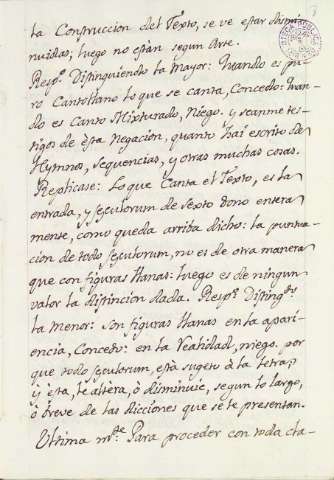 la Construccion del Texto, se ve estar dismi-
nuidas; luego no están segun Arte.
Respᵒ. Distinguiendo la Mayor: Quando es pu-
ro Cantollano lo que se canta, Concedo: Quan-
do es Canto Mixturado, Niego. y seanme tes-
tigos de esta Negacion, quanto hai escrito de
Hymnos, Sequencias, y otras muchas cosas.
Replicase: Lo que Canta el Texto, es la
entrada, y seculorum de sexto tono entera
mente, como queda arriba dicho: la puntua-
cion de todo seculorum, no es de otra manera
que con figuras llanas: luego es de ningun
valor la distincion dada. Respᵒ. Disting.ᵈᵒ
la menor: son figuras llanas en la apari-
encia, Concedo: en la Realidad, niego. por
que todo seculorum, está sugeto à la letra,
y esta, le altera, ò disminuie, segun lo largo,
ò breve de las dicciones que se le presentan.
Ultima m.ᵗᵉ Para proceder con toda cla-